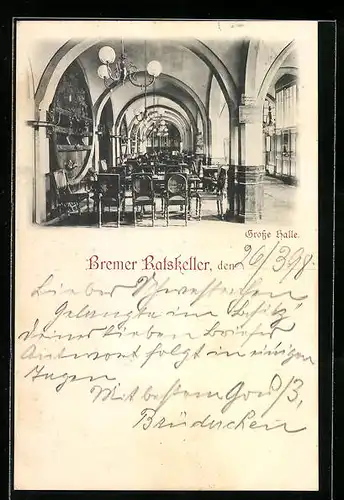 Große Halle.
Bremer Ratskeller, den 26/3 98.
Lieber Schwesterchen
Gelangte im Besitz
deines lieben Briefes
Antwort folgt in einigen
Tagen
Mit bestem Gruß,
Brüderchen